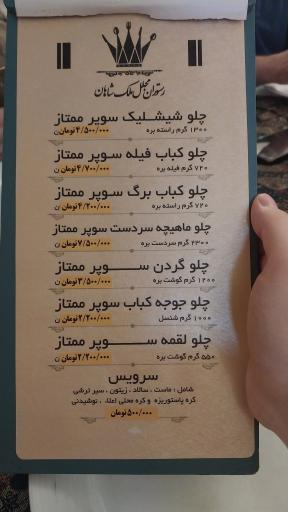 رستوران مجلل ملک شاهان
چلو شیشلیک سوپر ممتاز
۱۳۰۰ گرم راسته بره
۴/۵۰۰/۰۰۰ تومان
چلو کباب فیله سوپر ممتاز
۷۲۰ گرم فیله بره
۴/۷۰۰/۰۰۰ تومان
چلو کباب برگ سوپر ممتاز
۷۲۰ گرم راسته بره
۴/۲۰۰/۰۰۰ تومان
چلو ماهیچه سردست سوپر ممتاز
۲۳۰۰ گرم سردست بره
۷/۵۰۰/۰۰۰ تومان
چلو گردن سوپر ممتاز
۱۲۰۰ گرم گوشت بره
۳/۵۰۰/۰۰۰ تومان
چلو جوجه کباب سوپر ممتاز
۱۰۰۰ گرم شنسل
۲/۲۰۰/۰۰۰ تومان
چلو لقمه سوپر ممتاز
۵۵۰ گرم گوشت بره
۲/۲۰۰/۰۰۰ تومان
سرویس
شامل : ماست ، سالاد ، زیتون ، سیر ترشی
کره پاستوریزه و کره محلی اعلاء ، نوشیدنی
۵۰۰/۰۰۰ تومان